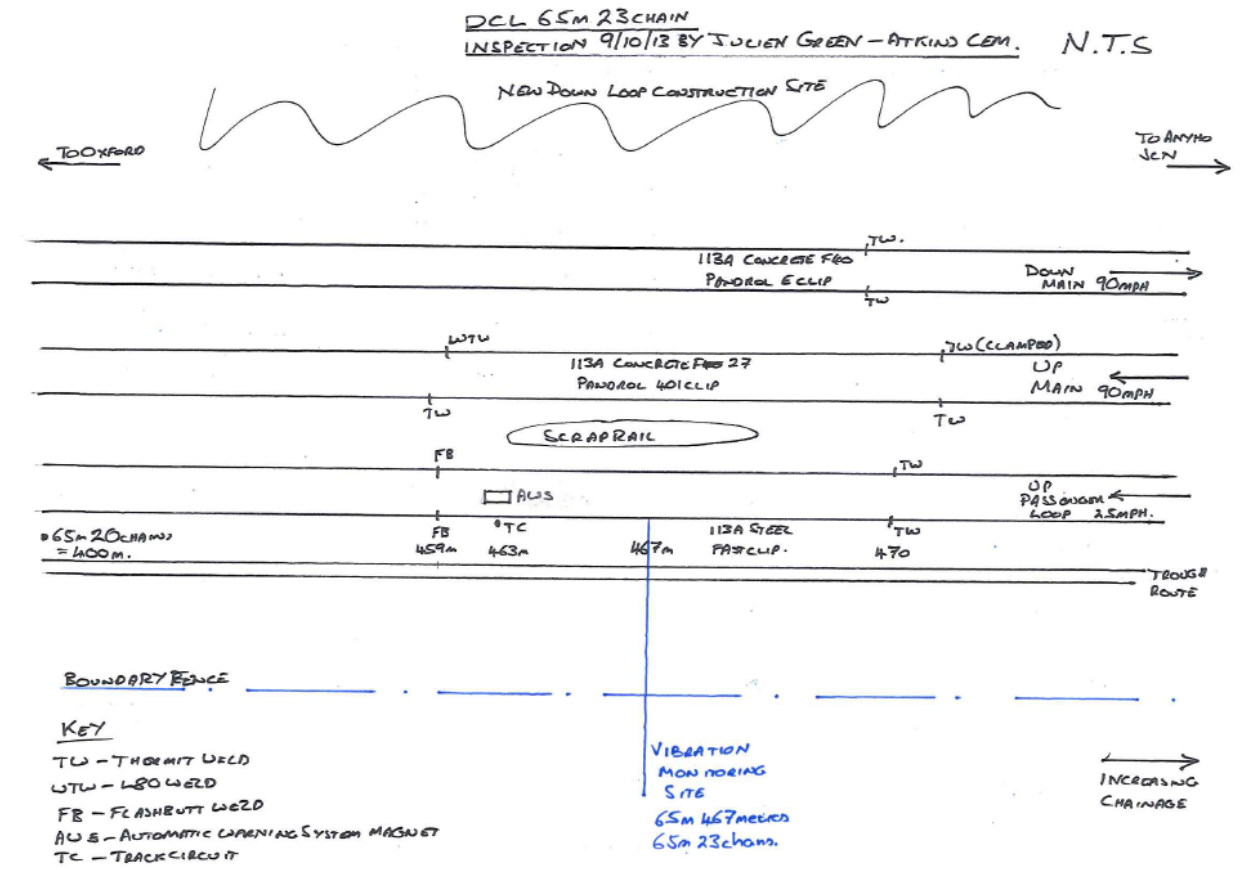 DCL 65M 23CHAIN
INSPECTION 9/10/13 BY JULIEN GREEN - ATKINS CEM.
N.T.S
NEW DOWN LOOP CONSTRUCTION SITE
TO OXFORD
TO AYNHO
JCN
TW.
113A CONCRETE F40
PANDROL E CLIP
DOWN
MAIN 90MPH
TW
WTW
TW (CLAMPED)
113A CONCRETE F40 27
PANDROL 401 CLIP
UP
MAIN 90MPH
TW
TW
SCRAP RAIL
FB
TW
AWS
UP
PASSENGER
LOOP 25MPH.
65M 20CHAINS
= 400M.
FB
459m
TC
463m
467m
113A STEEL
FASTCLIP.
TW
470
TROUGH
ROUTE
BOUNDARY FENCE
KEY
TW - THERMIT WELD
WTW - W80 WELD
FB - FLASHBUTT WELD
AWS - AUTOMATIC WARNING SYSTEM MAGNET
TC - TRACK CIRCUIT
VIBRATION
MONITORING
SITE
65M 467metres
65M 23chains.
INCREASING
CHAINAGE